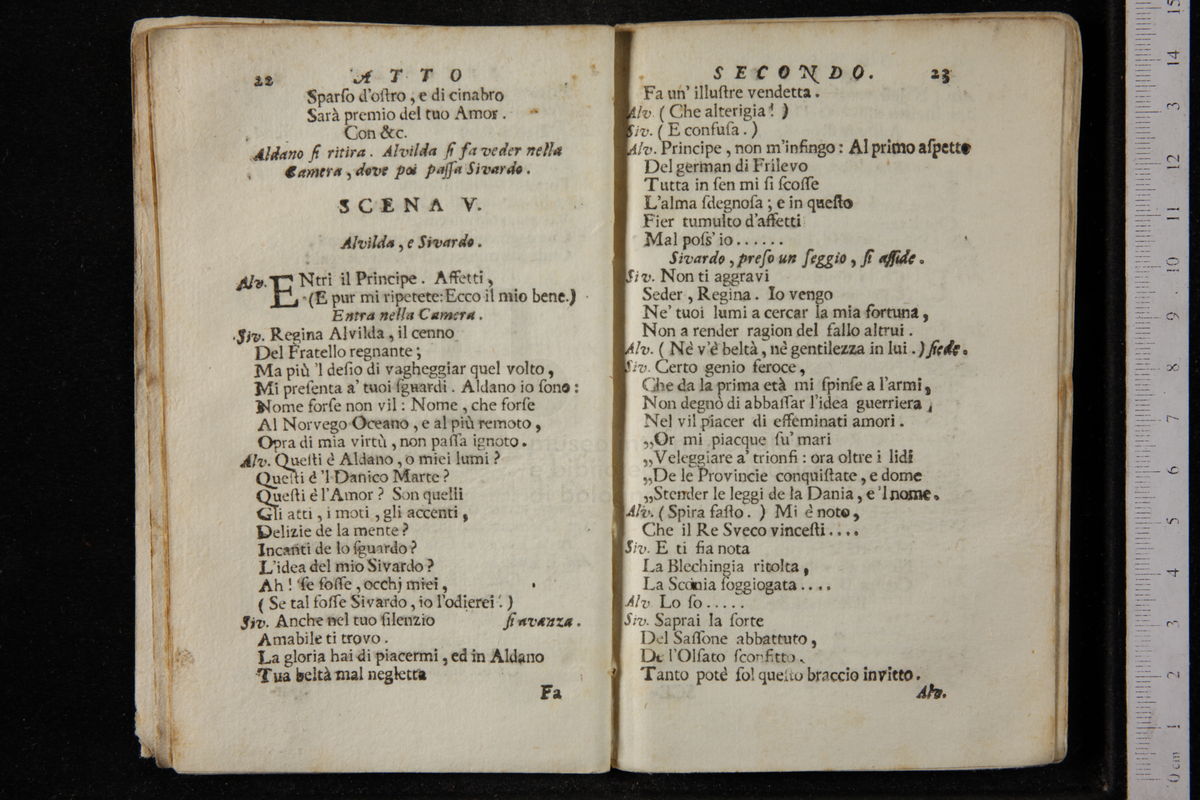 22 ATTO
Sparſo d'oſtro, e di cinabro
Sarà premio del tuo Amor.
Con &c.
Aldano ſi ritira. Alvilda ſi fa veder nella
Camera, dove poi paſſa Sivardo.
SCENA V.
Alvilda, e Sivardo.
Alv. ENtri il Principe. Affetti,
(E pur mi ripetete: Ecco il mio bene.)
Entra nella Camera.
Siv. Regina Alvilda, il cenno
Del Fratello regnante;
Ma più 'l deſio di vagheggiar quel volto,
Mi preſenta a' tuoi ſguardi. Aldano io ſono:
Nome forſe non vil: Nome, che forſe
Al Norvego Oceano, e al più remoto,
Opra di mia virtù, non paſſa ignoto.
Alv. Queſti è Aldano, o miei lumi?
Queſti è 'l Danico Marte?
Queſti è l'Amor? Son quelli
Gli atti, i moti, gli accenti,
Delizie de la mente?
Incanti de lo ſguardo?
L'idea del mio Sivardo?
Ah! ſe foſſe, occhj miei,
(Se tal foſſe Sivardo, io l'odierei!)
Siv. Anche nel tuo ſilenzio ſi avanza.
Amabile ti trovo.
La gloria hai di piacermi, ed in Aldano
Tua beltà mal negletta
Fa
SECONDO. 23
Fa un' illuſtre vendetta.
Alv. (Che alterigia!)
Siv. (E confuſa.)
Alv. Principe, non m'infingo: Al primo aſpetto
Del german di Frilevo
Tutta in ſen mi ſi ſcoſſe
L'alma ſdegnoſa; e in queſto
Fier tumulto d'affetti
Mal poſs' io......
Sivardo, preſo un ſeggio, ſi aſſide.
Siv. Non ti aggravi
Seder, Regina. Io vengo
Ne' tuoi lumi a cercar la mia fortuna,
Non a render ragion del fallo altrui.
Alv. (Nè v'è beltà, nè gentilezza in lui.) ſiede.
Siv. Certo genio feroce,
Che da la prima età mi ſpinſe a l'armi,
Non degnò di abbaſſar l'idea guerriera
Nel vil piacer di effeminati amori.
„Or mi piacque ſu' mari
„Veleggiare a' trionfi: ora oltre i lidi
„De le Provincie conquiſtate, e dome
„Stender le leggi de la Dania, e 'l nome.
Alv. (Spira faſto.) Mi è noto,
Che il Re Sveco vinceſti....
Siv. E ti ſia nota
La Blechingia ritolta,
La Scania ſoggiogata....
Alv Lo ſo.....
Siv. Saprai la ſorte
Del Saſſone abbattuto,
De l'Olſato ſconfitto.
Tanto potè ſol queſto braccio invitto.
Alv.